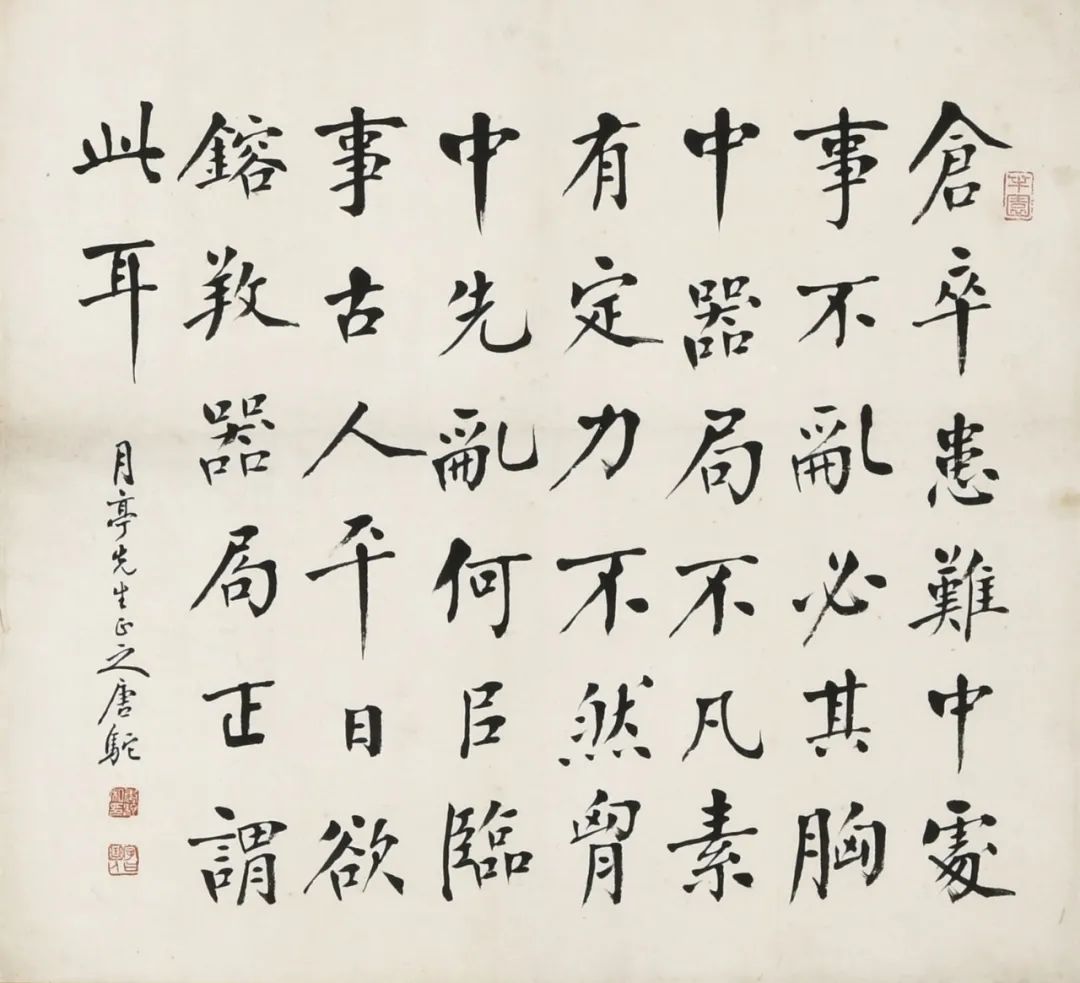 倉卒患難中處
事不亂必其胸
中器局不凡素
有定力不然胷
中先亂何㠯臨
事古人平日欲
鎔𢼝器局正謂
此耳
月亭先生正之唐駝